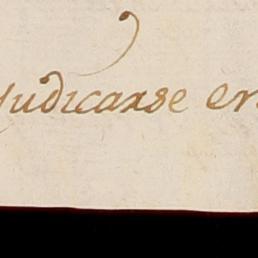 judicarse en